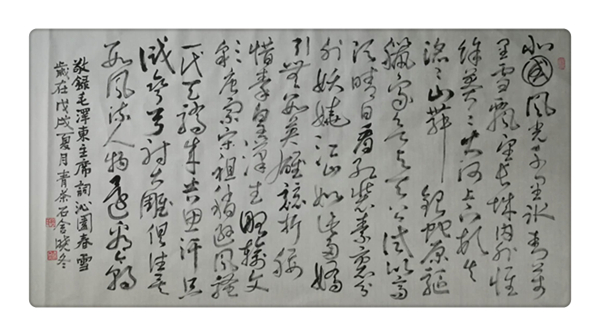 北國風光千里冰封萬
里雪飄望長城內外惟
餘莽〻大河上下頓失
滔〻山舞銀蛇原驅
臘象欲與天公試比高
須晴日看紅裝素裹分
外妖嬈江山如此多嬌
引無數英雄競折腰
惜秦皇漢武略輸文
彩唐宗宋祖稍遜風騷
一代天驕成吉思汗只
識彎弓射大雕俱往矣
數風流人物還看今朝
敬錄毛澤東主席詞沁園春雪
歲在戊戌夏月青茶石舍曉冬